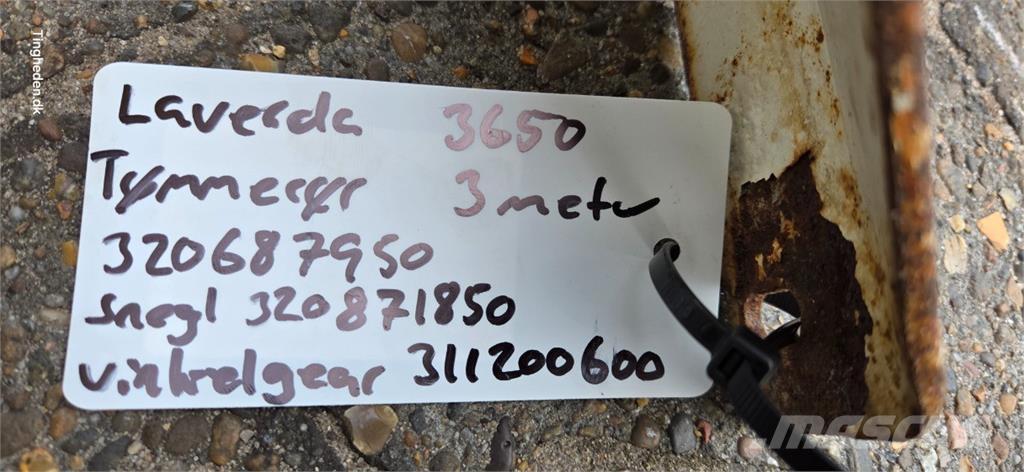 Tingheden.dk
Laverda 3650
Tømmerør 3 meter
320687950
snegl 320871850
vinkelgear 311200600
mascus